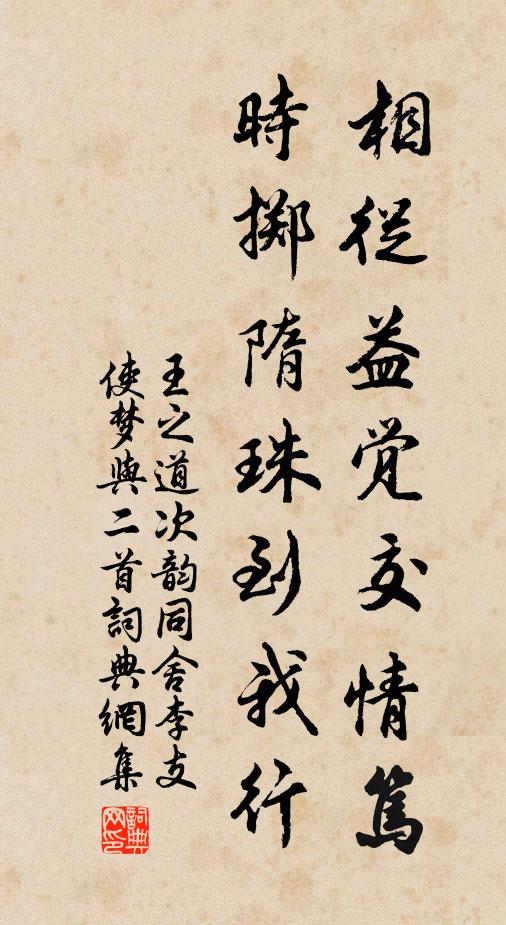 相從益覚交情篤
時擲隋珠到我行
王之道次韵同舍李支
使梦與二首詞典網集
詞典网印